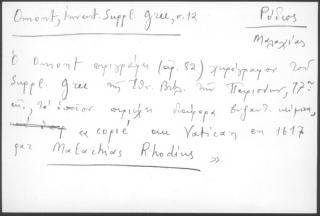 Omont, Invent. Suppl. Grec, σ. 12
Ρόδιος
Μαλαχίας
Ὁ Omont περιγράφει (ἀρ. 82) χειρόγραφον τοῦ
Suppl. Grec τῆς Ἐθν. Βιβλ. τῶν Παρισίων, 17ου
αἰ., τὸ ὁποῖον περιέχει διάφορα βυζαντ. κείμενα,
« copié au Vatican en 1617
par Malachias Rhodius ».